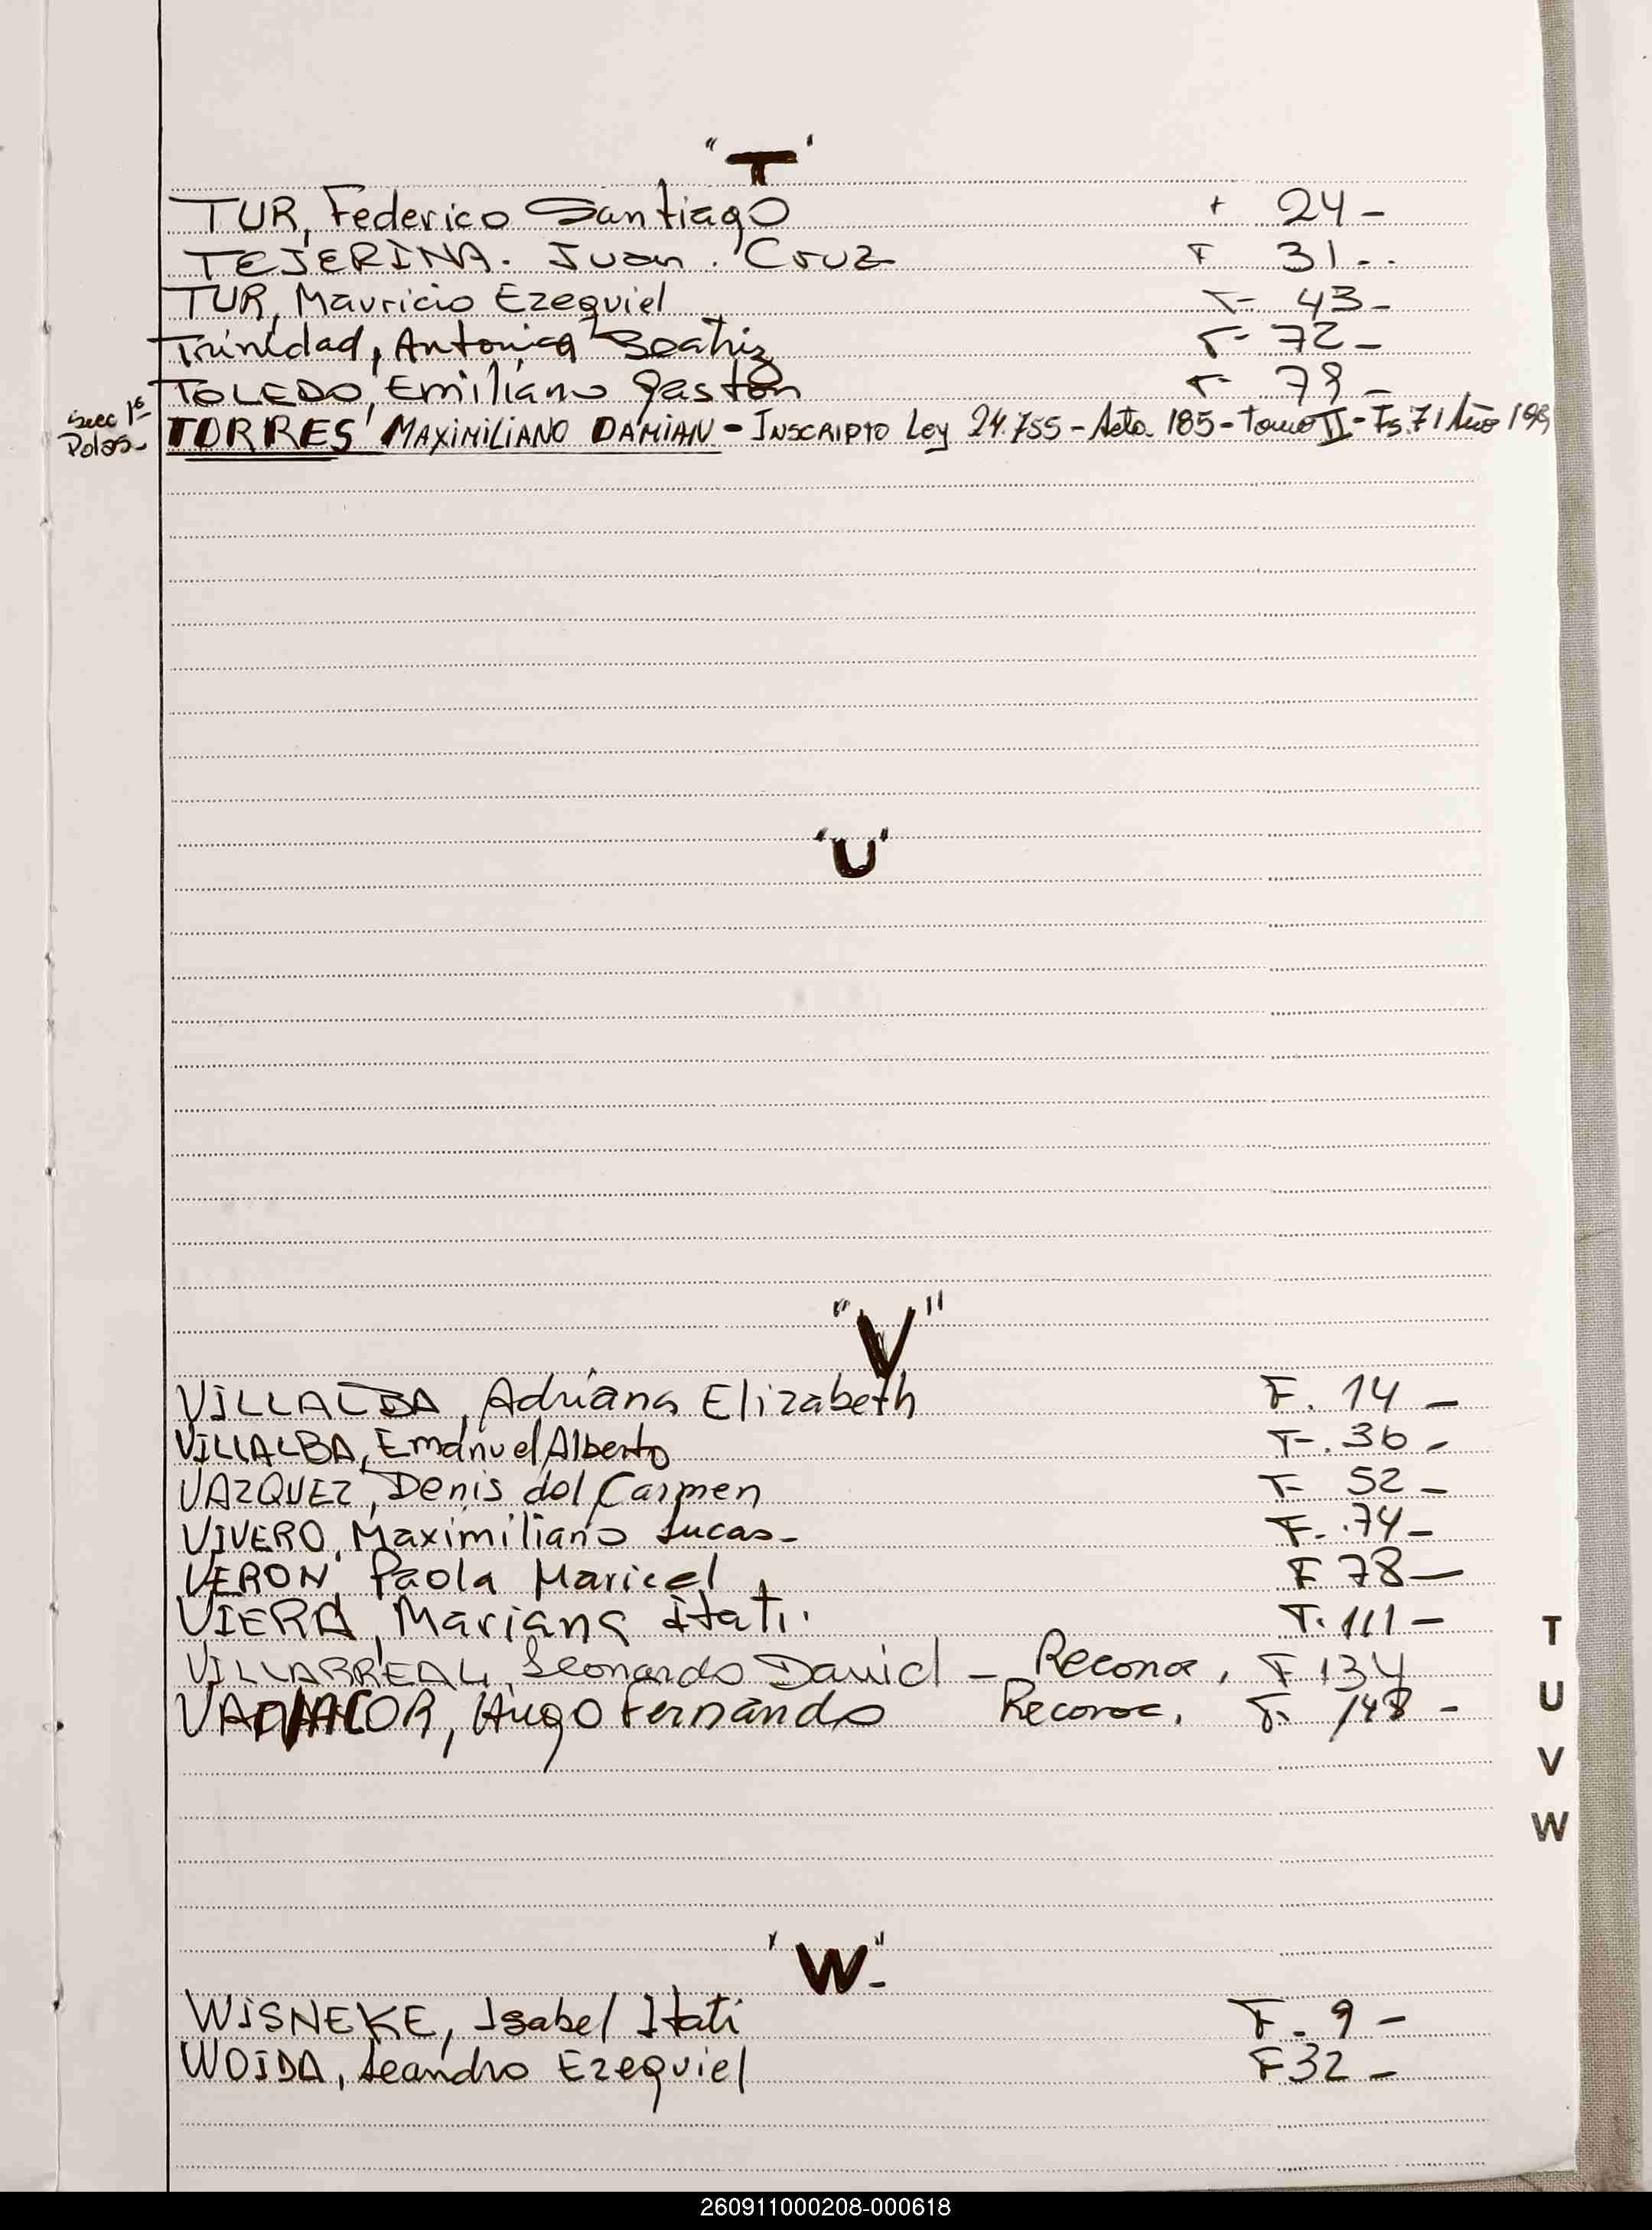 "T"
TUR, Federico Santiago F 24-
TEJERINA. Juan. Cruz F 31..
TUR, Mauricio Ezequiel F- 43-
Trinidad, Antonica Beatriz F- 72-
TOLEDO, Emiliano Gastón F- 79-
Secc 1º
Polos-
TORRES MAXIMILIANO DAMIAN - INSCRIPTO Ley 24.755 - Acta 185 - Tomo II - Fs. 71 Año
"U"
"V"
VILLALBA, Adriana Elizabeth F. 14-
VILLALBA, Emanuel Alberto F-. 36-
VAZQUEZ, Denis del Carmen F- 52-
VIVERO, Maximiliano Lucas- F-. 74-
VERON, Paola Maricel F 78-
VIERA, Mariana Itatí. F. 111-
VILLARREAL, Leonardo David - Reconoc. F 134
Hugo Fernando Reconoc. F. 148-
"W"-
WISNEKE, Isabel Itatí F. 9-
WOJDA, Leandro Ezequiel F 32-
T
U
V
W
260911000208-000618